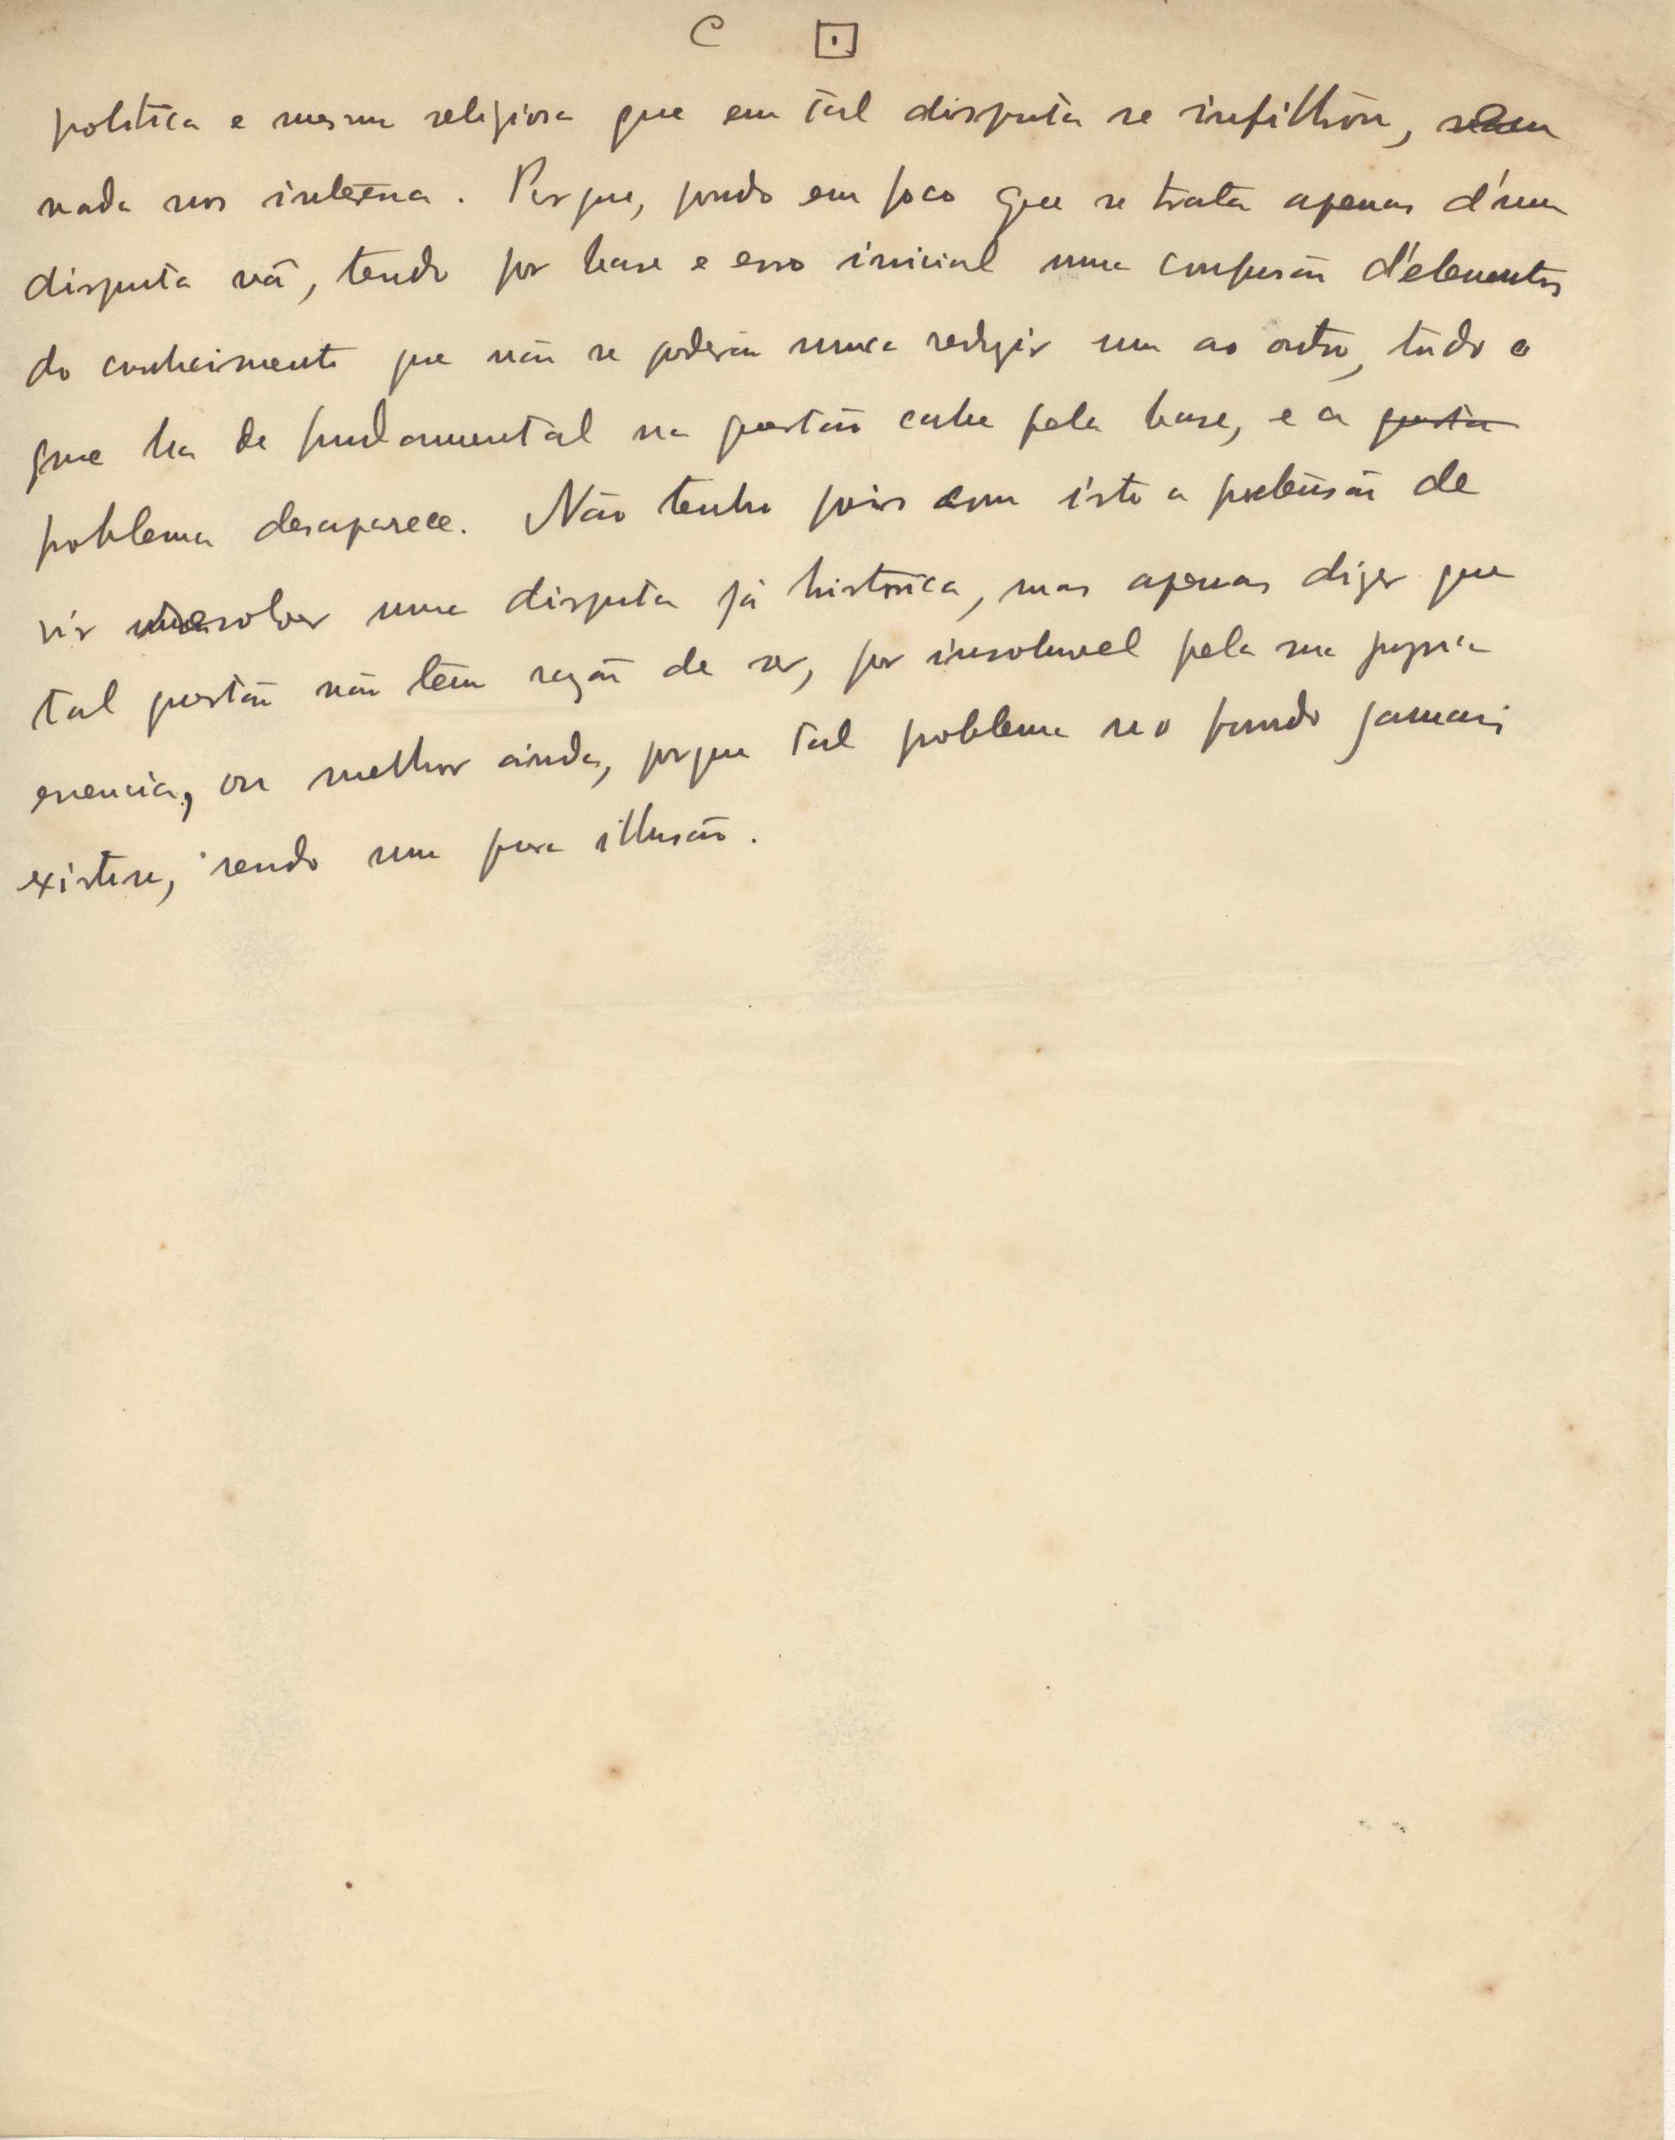 C
politica e mesmo religiosa que em tal disputa se infiltrou,
nada nos interessa. Porque, pondo em foco que se trata apenas d'uma
disputa vã, tendo por base e erro inicial uma confusão d'elementos
do conhecimento que não se poderão nunca reduzir um ao outro, tudo o
que ha de fundamental na questão cahe pela base, e o questão
problema desaparece. Não tenho pois com isto a pretensão de
vir resolver uma disputa já historica, mas apenas dizer que
tal questão não têm razão de ser, por insoluvel pela sua propria
essencia, ou melhor ainda, porque tal problema no fundo jamais
existiu, sendo uma pura illusão.